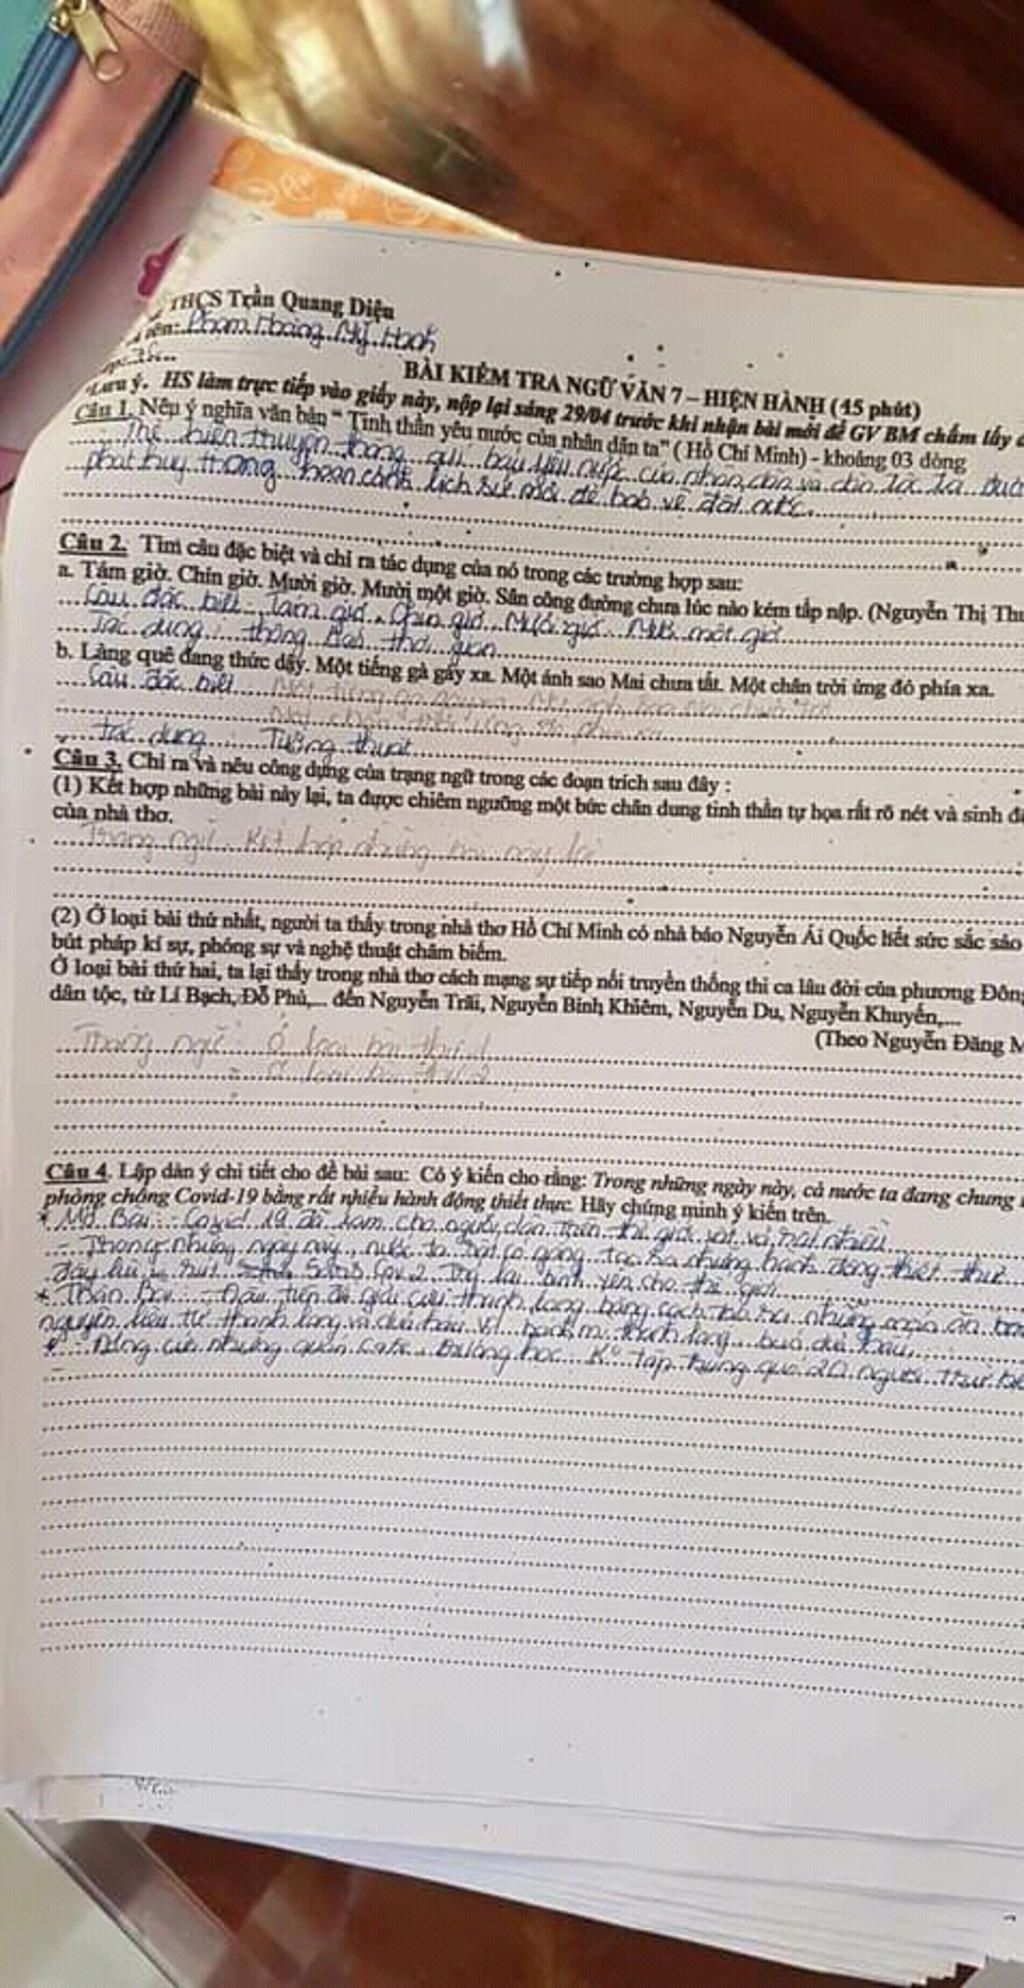 THCS Trần Quang Diệu
tên: Phạm Hoàng Mỹ Hạnh
BÀI KIỂM TRA NGỮ VĂN 7 – HIỆN HÀNH (45 phút)
Lưu ý. HS làm trực tiếp vào giấy này, nộp lại sáng 29/04 trước khi nhận bài mới để GV BM chấm lấy
Câu 1. Nêu ý nghĩa văn bản " Tinh thần yêu nước của nhân dân ta" ( Hồ Chí Minh) - khoảng 03 dòng
Thể hiện truyền thống quí báu yêu nước của nhân dân và dân ta là
phát huy trong hoàn cảnh lịch sử mới để bảo vệ đất nước.
Câu 2. Tìm câu đặc biệt và chỉ ra tác dụng của nó trong các trường hợp sau:
a. Tám giờ. Chín giờ. Mười giờ. Mười một giờ. Sân công đường chưa lúc nào kém tấp nập. (Nguyễn Thị
Câu đặc biệt Tám giờ. Chín giờ. Mười giờ. Mười một giờ
Tác dụng: thông báo thời gian
b. Làng quê đang thức dậy. Một tiếng gà gáy xa. Một ánh sao Mai chưa tắt. Một chân trời ửng đỏ phía xa.
Câu đặc biệt
Tác dụng: Tường thuật
Câu 3. Chỉ ra và nêu công dụng của trạng ngữ trong các đoạn trích sau đây :
(1) Kết hợp những bài này lại, ta được chiêm ngưỡng một bức chân dung tinh thần tự họa rất rõ nét và sinh
của nhà thơ.
Trạng ngữ: Kết hợp những bài này lại
(2) Ở loại bài thứ nhất, người ta thấy trong nhà thơ Hồ Chí Minh có nhà báo Nguyễn Ái Quốc hết sức sắc sảo
bút pháp kí sự, phóng sự và nghệ thuật châm biếm.
Ở loại bài thứ hai, ta lại thấy trong nhà thơ cách mạng sự tiếp nối truyền thống thi ca lâu đời của phương Đông
dân tộc, từ Lí Bạch, Đỗ Phủ,... đến Nguyễn Trãi, Nguyễn Bỉnh Khiêm, Nguyễn Du, Nguyễn Khuyến,...
(Theo Nguyễn Đăng M
Trạng ngữ: Ở loại bài thứ 1
Ở loại bài thứ 2
Câu 4. Lập dàn ý chi tiết cho đề bài sau: Có ý kiến cho rằng: Trong những ngày này, cả nước ta đang chung
phòng chống Covid-19 bằng rất nhiều hành động thiết thực. Hãy chứng minh ý kiến trên.
* Mở Bài: Covid 19 đã làm cho người dân trên thế giới vất vả rất nhiều
- Trong những ngày này, nước ta cố gắng tạo ra những hành động thiết thực
đẩy lùi Sars Cov 2 bình yên cho thế giới
* Thân Bài: Đầu tiên giải cứu thanh long bằng cách những món ăn
nguyên liệu từ thanh long và dưa hấu bánh mì thanh long dưa hấu
- Đóng cửa những quán cafe, trường học K° tập trung quá 20 người